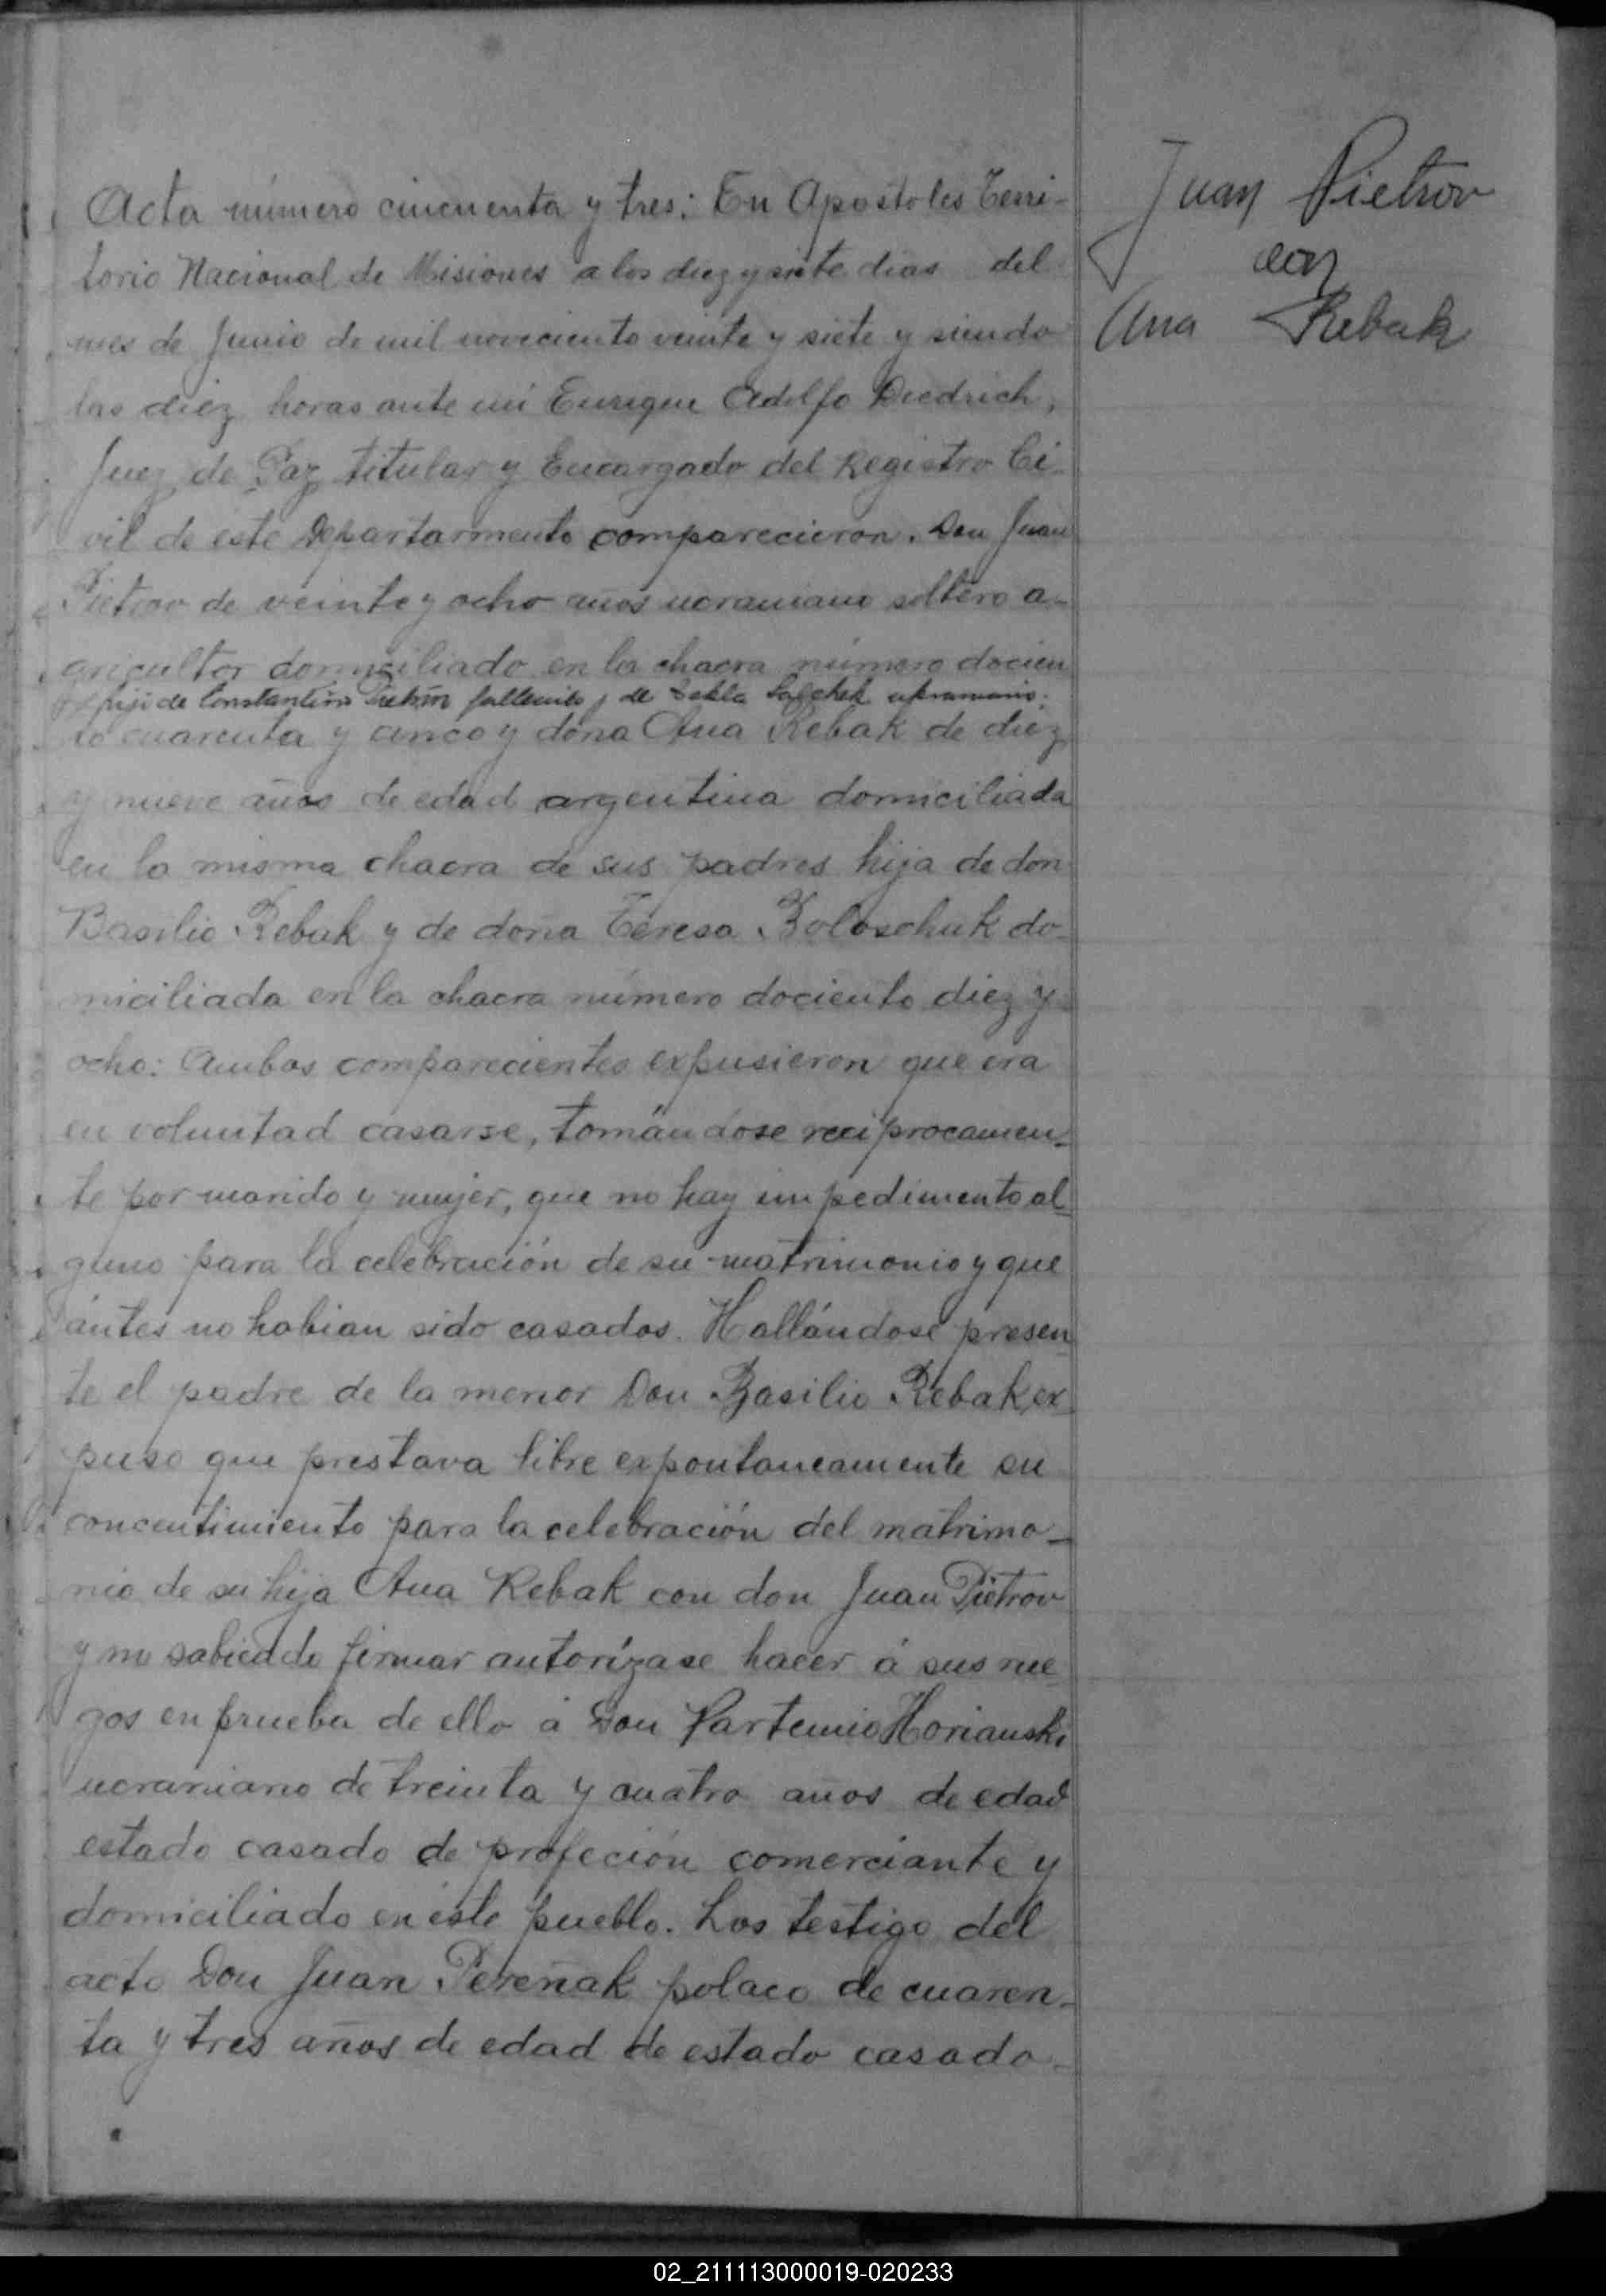 Juan Pietrov
con
Ana Rebak
Acta número cincuenta y tres: En Apostoles Terri-
torio Nacional de Misiones a los diez y siete dias del
mes de Junio de mil noveciento veinte y siete y siendo
las diez horas ante mi Enrique Adolfo Diedrich,
Juez de Paz titular y Encargado del Registro Ci-
vil de este Departarmento comparecieron. Don Juan
Pietrov de veinte y ocho años ucraniano soltero a-
gricultor domiciliado en la chacra número docien
hijo de Constantino fallecido y de Tekla ukraniano.
to cuarenta y cinco y doña Ana Rebak de diez
y nueve años de edad argentina domiciliada
en la misma chacra de sus padres hija de don
Basilio Rebak y de doña Teresa Boloschuk do-
miciliada en la chacra número dociento diez y
ocho: Ambos comparecientes expusieron que era
su voluntad casarse, tomándose reciprocamen-
te por marido y mujer, que no hay impedimento al-
guno para la celebración de su matrimonio y que
ántes no habian sido casados. Hallándose presen-
te el padre de la menor Don Basilio Rebak, ex-
puso que prestava libre expontaneamente su
concentimiento para la celebración del matrimo-
nio de su hija Ana Rebak con don Juan Pietrov
y no sabiendo firmar autorízase hacer á sus rue-
gos en prueba de ello á Don Partemio Horianski
ucraniano de treinta y cuatro años de edad
estado casado de profeción comerciante y
domiciliado en éste pueblo. Los testigo del
acto Don Juan Pereñak polaco de cuaren-
ta y tres años de edad de estado casado-
02_211113000019-020233